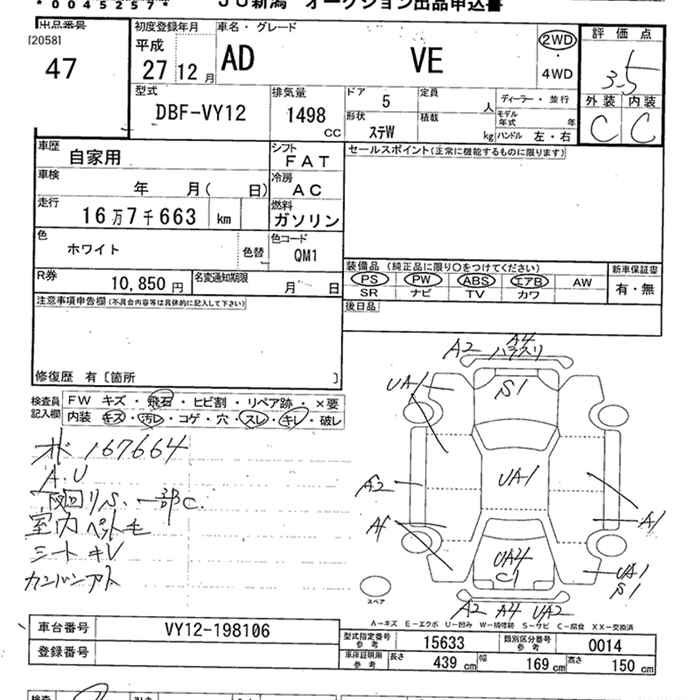 * 0045257 * JU新潟 オークション出品申込書
出品番号 初度登録年月 車名・グレード 評価点
[2058] 平成
47 27 12月 AD VE 2WD ・ 4WD 3.5
外装 内装
C C
型式 DBF-VY12 排気量 1498 CC ドア 5 定員 人 ディーラー・並行
形状 ステW 積載 kg モデル年式 年 ハンドル 左・右
車歴 自家用 シフト FAT セールスポイント(正常に機能するものに限ります)
車検 年 月( 日) 冷房 AC
走行 16万7千663 km 燃料 ガソリン
色 ホワイト 色替 色コード QM1
装備品 (純正品に限り○をつけてください) 新車保証書
PS PW ABS エアB AW 有・無
SR ナビ TV カワ
R券 10,850円 名変通知期限 月 日
後日品
注意事項申告欄(不具合内容等は具体的に記入して下さい)
修復歴 有 [箇所 ]
検査員記入欄 FW キズ・飛石・ヒビ割・リペア跡・×要
内装 キズ・汚レ・コゲ・穴・スレ・キレ・破レ
167664
A.U
下回りS、一部C.
室内ペット毛
シートキレ
A2 A4
UA1 S1
UA1
A2
A1
UA4
C1
UA1
S1
スペア
A2 A4 UA2
A-キズ E-エクボ U-凹み W-補修跡 S-サビ C-腐食 XX-交換済
車台番号 VY12-198106
登録番号
型式指定番号 参考 15633 類別区分番号 参考 0014
車体証明用 参考 長さ 439 cm 幅 169 cm 高さ 150 cm